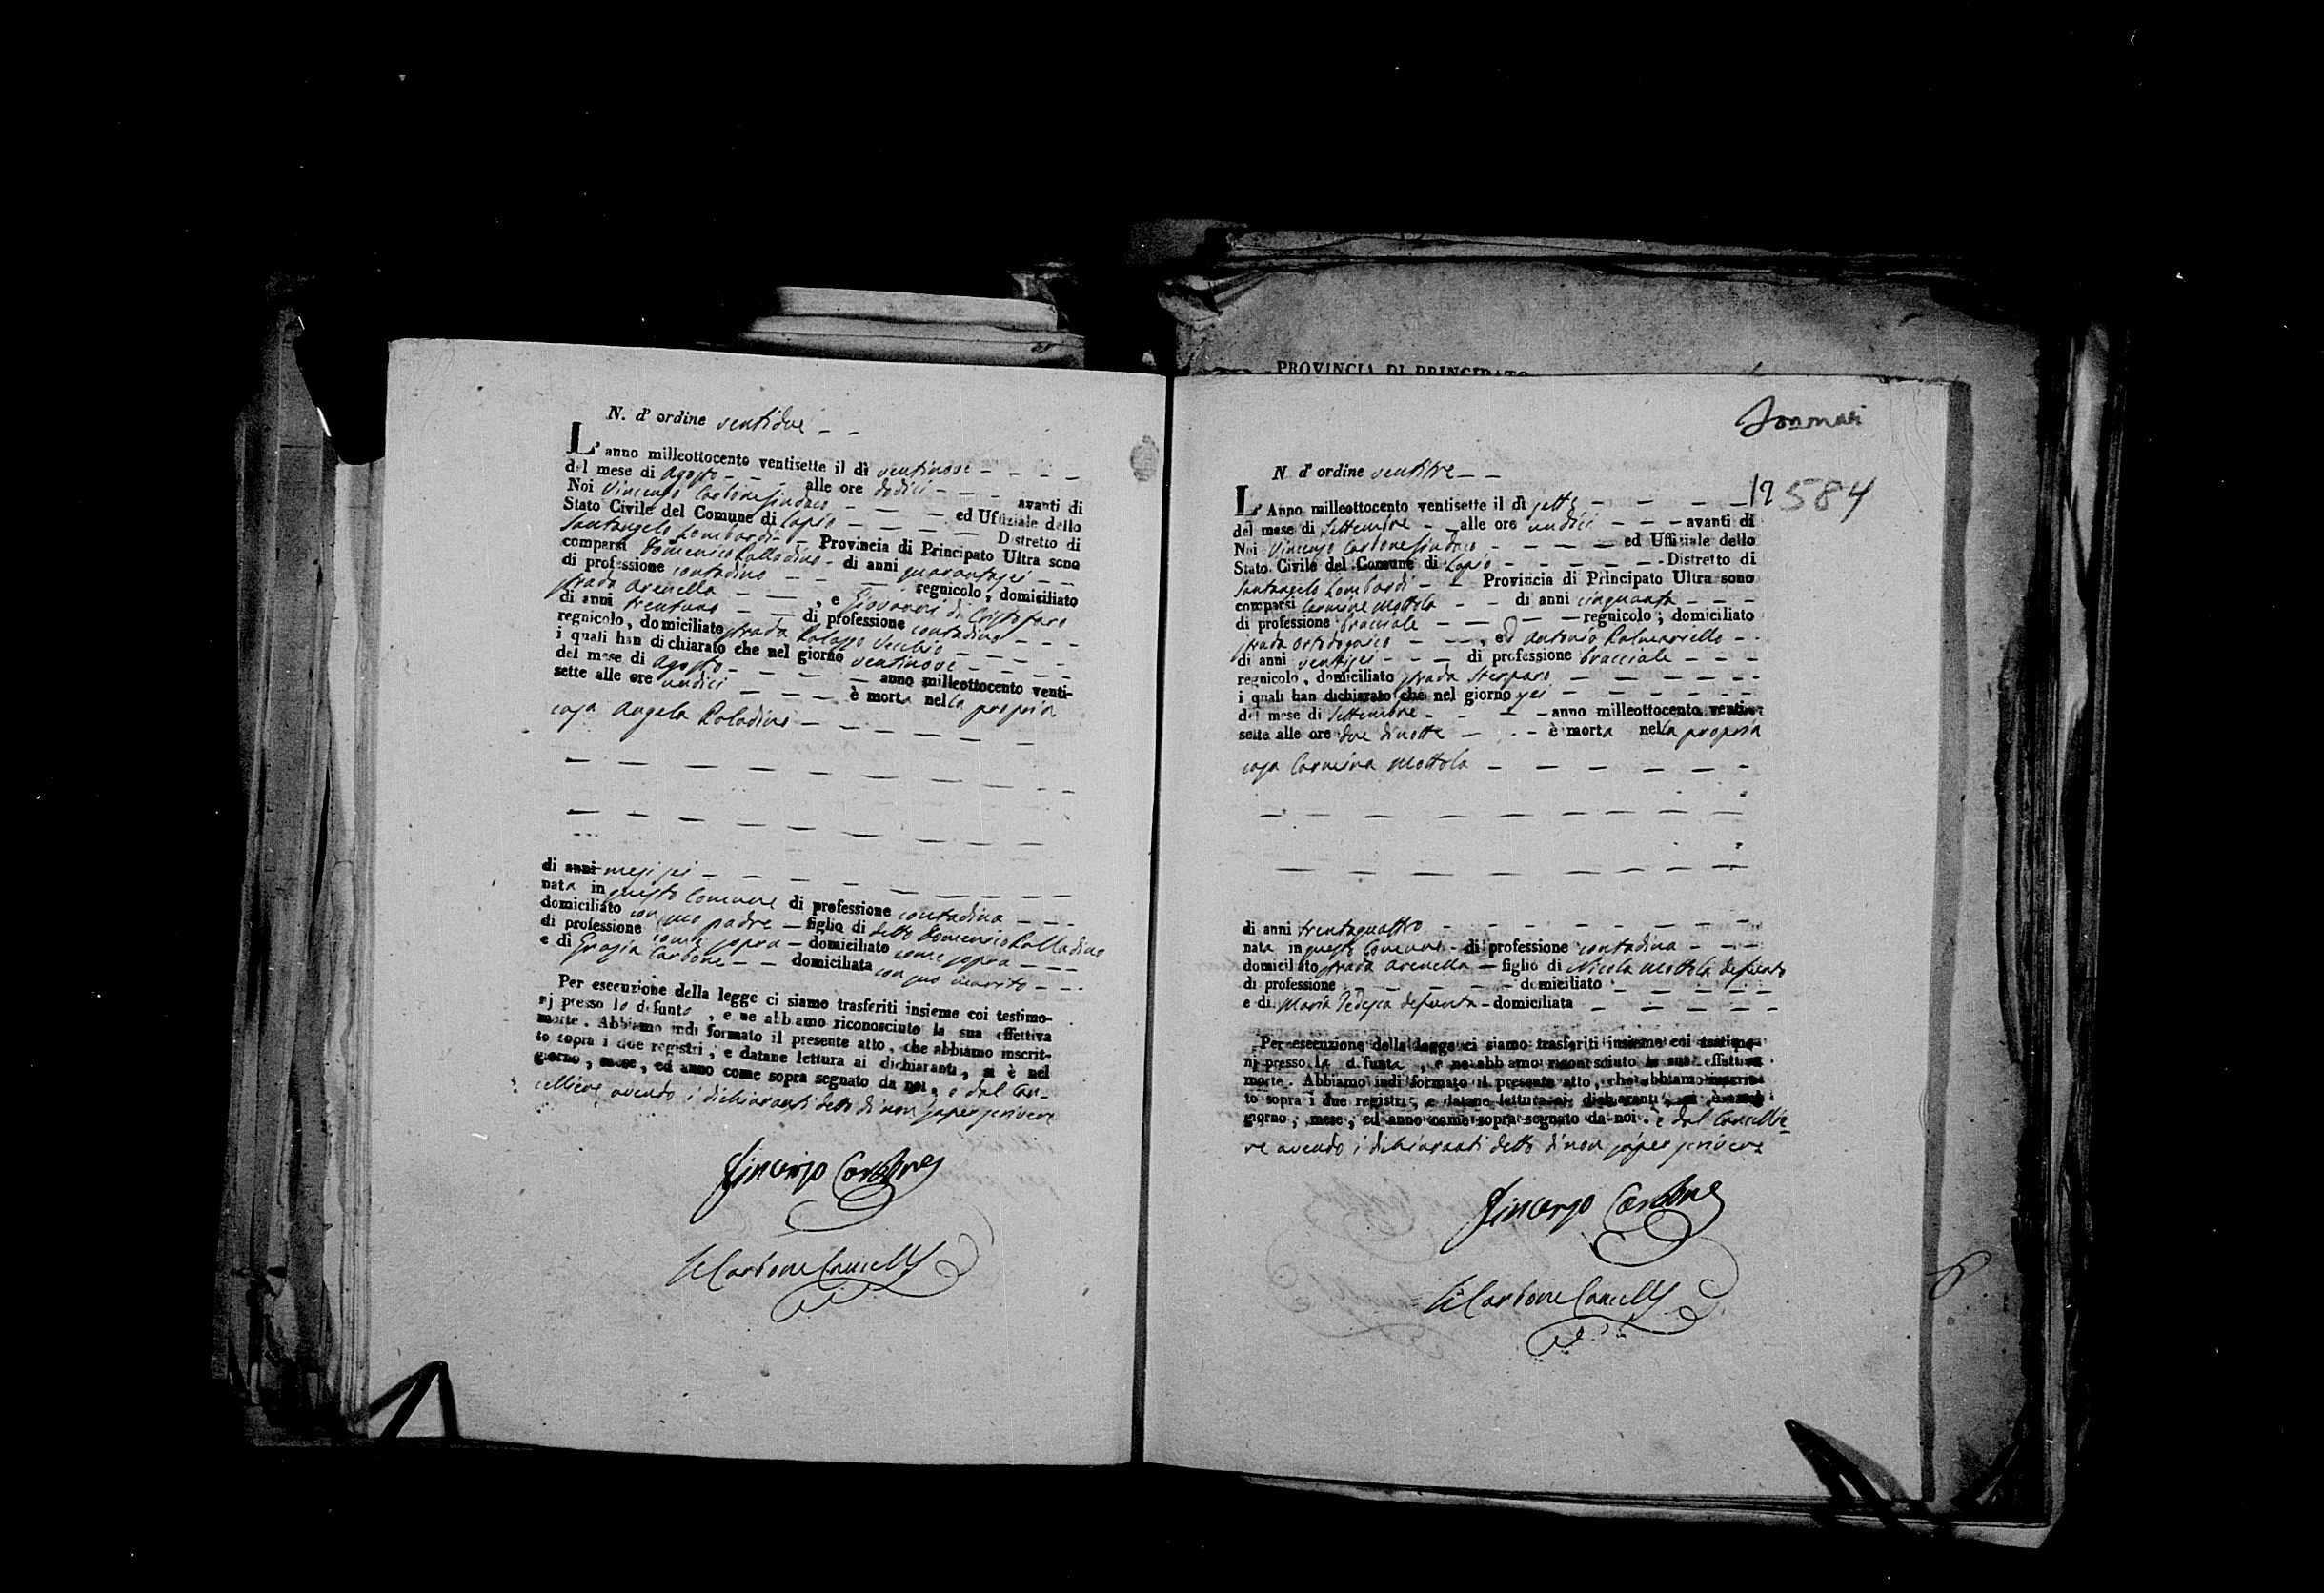 N. d' ordine ventidue
L' anno milleottocento ventisette il dì ventinove
del mese di Agosto alle ore dodici avanti di
Noi Vincenzo Carbone Sindaco ed Ufiziale dello
Stato Civile del Comune di Lapio Distretto di
Santangelo Lombardi Provincia di Principato Ultra sono
comparsi Domenico Palladino di anni quarantasei
di professione contadino regnicolo, domiciliato
strada Arenella, e Giovanni di Cristofaro
di anni trentuno di professione contadino
regnicolo, domiciliato strada Palazzo Vecchio
i quali han dichiarato che nel giorno ventinove
del mese di Agosto anno milleottocento venti-
sette alle ore undici è morta nella propria
casa Angela Paladino
di anni mesi sei
nata in questo Comune di professione contadina
domiciliato con suo padre figlio di detto Domenico Palladino
di professione come sopra domiciliato come sopra
e di Grazia Carbone domiciliata con suo marito
Per esecuzione della legge ci siamo trasferiti insieme coi testimo-
nj presso la defunta, e ne abbiamo riconosciuto la sua effettiva
morte. Abbiamo indi formato il presente atto, che abbiamo inscrit-
to sopra i due registri, e datane lettura ai dichiaranti, si è nel
giorno, mese, ed anno come sopra segnato da noi, e dal Can-
celliere avendo i dichiaranti detto di non saper scrivere
Vincenzo Carbone
Carbone Cancell
PROVINCIA DI PRINCIPATO
N. d' ordine ventitre
19 584
L' Anno milleottocento ventisette il dì sette
del mese di Settembre alle ore undici avanti di
Noi Vincenzo Carbone Sindaco ed Uffiziale dello
Stato Civile del Comune di Lapio Distretto di
Santangelo Lombardi Provincia di Principato Ultra sono
comparsi Carmine Mottola di anni cinquanta
di professione bracciale regnicolo, domiciliato
strada, ed Antonio Palmariello
di anni ventisei di professione bracciale
regnicolo, domiciliato strada Sterparo
i quali han dichiarato che nel giorno sei
del mese di Settembre anno milleottocento venti-
sette alle ore due di notte è morta nella propria
casa Carmina Mottola
di anni trentaquattro
nata in questo Comune di professione contadina
domiciliato strada Arenella figlio di Nicola Mottola defunto
di professione domiciliato
e di Maria Tedesca defunta domiciliata
Per esecuzione della legge ci siamo trasferiti insieme coi testimo-
nj presso la defunta, e ne abbiamo riconosciuto la sua effettiva
morte. Abbiamo indi formato il presente atto, che abbiamo inscrit-
to sopra i due registri, e datane lettura ai dichiaranti, si è nel
giorno, mese, ed anno come sopra segnato da noi, e dal Cancellie-
re avendo i dichiaranti detto di non saper scrivere
Vincenzo Carbone
Carbone Cancell